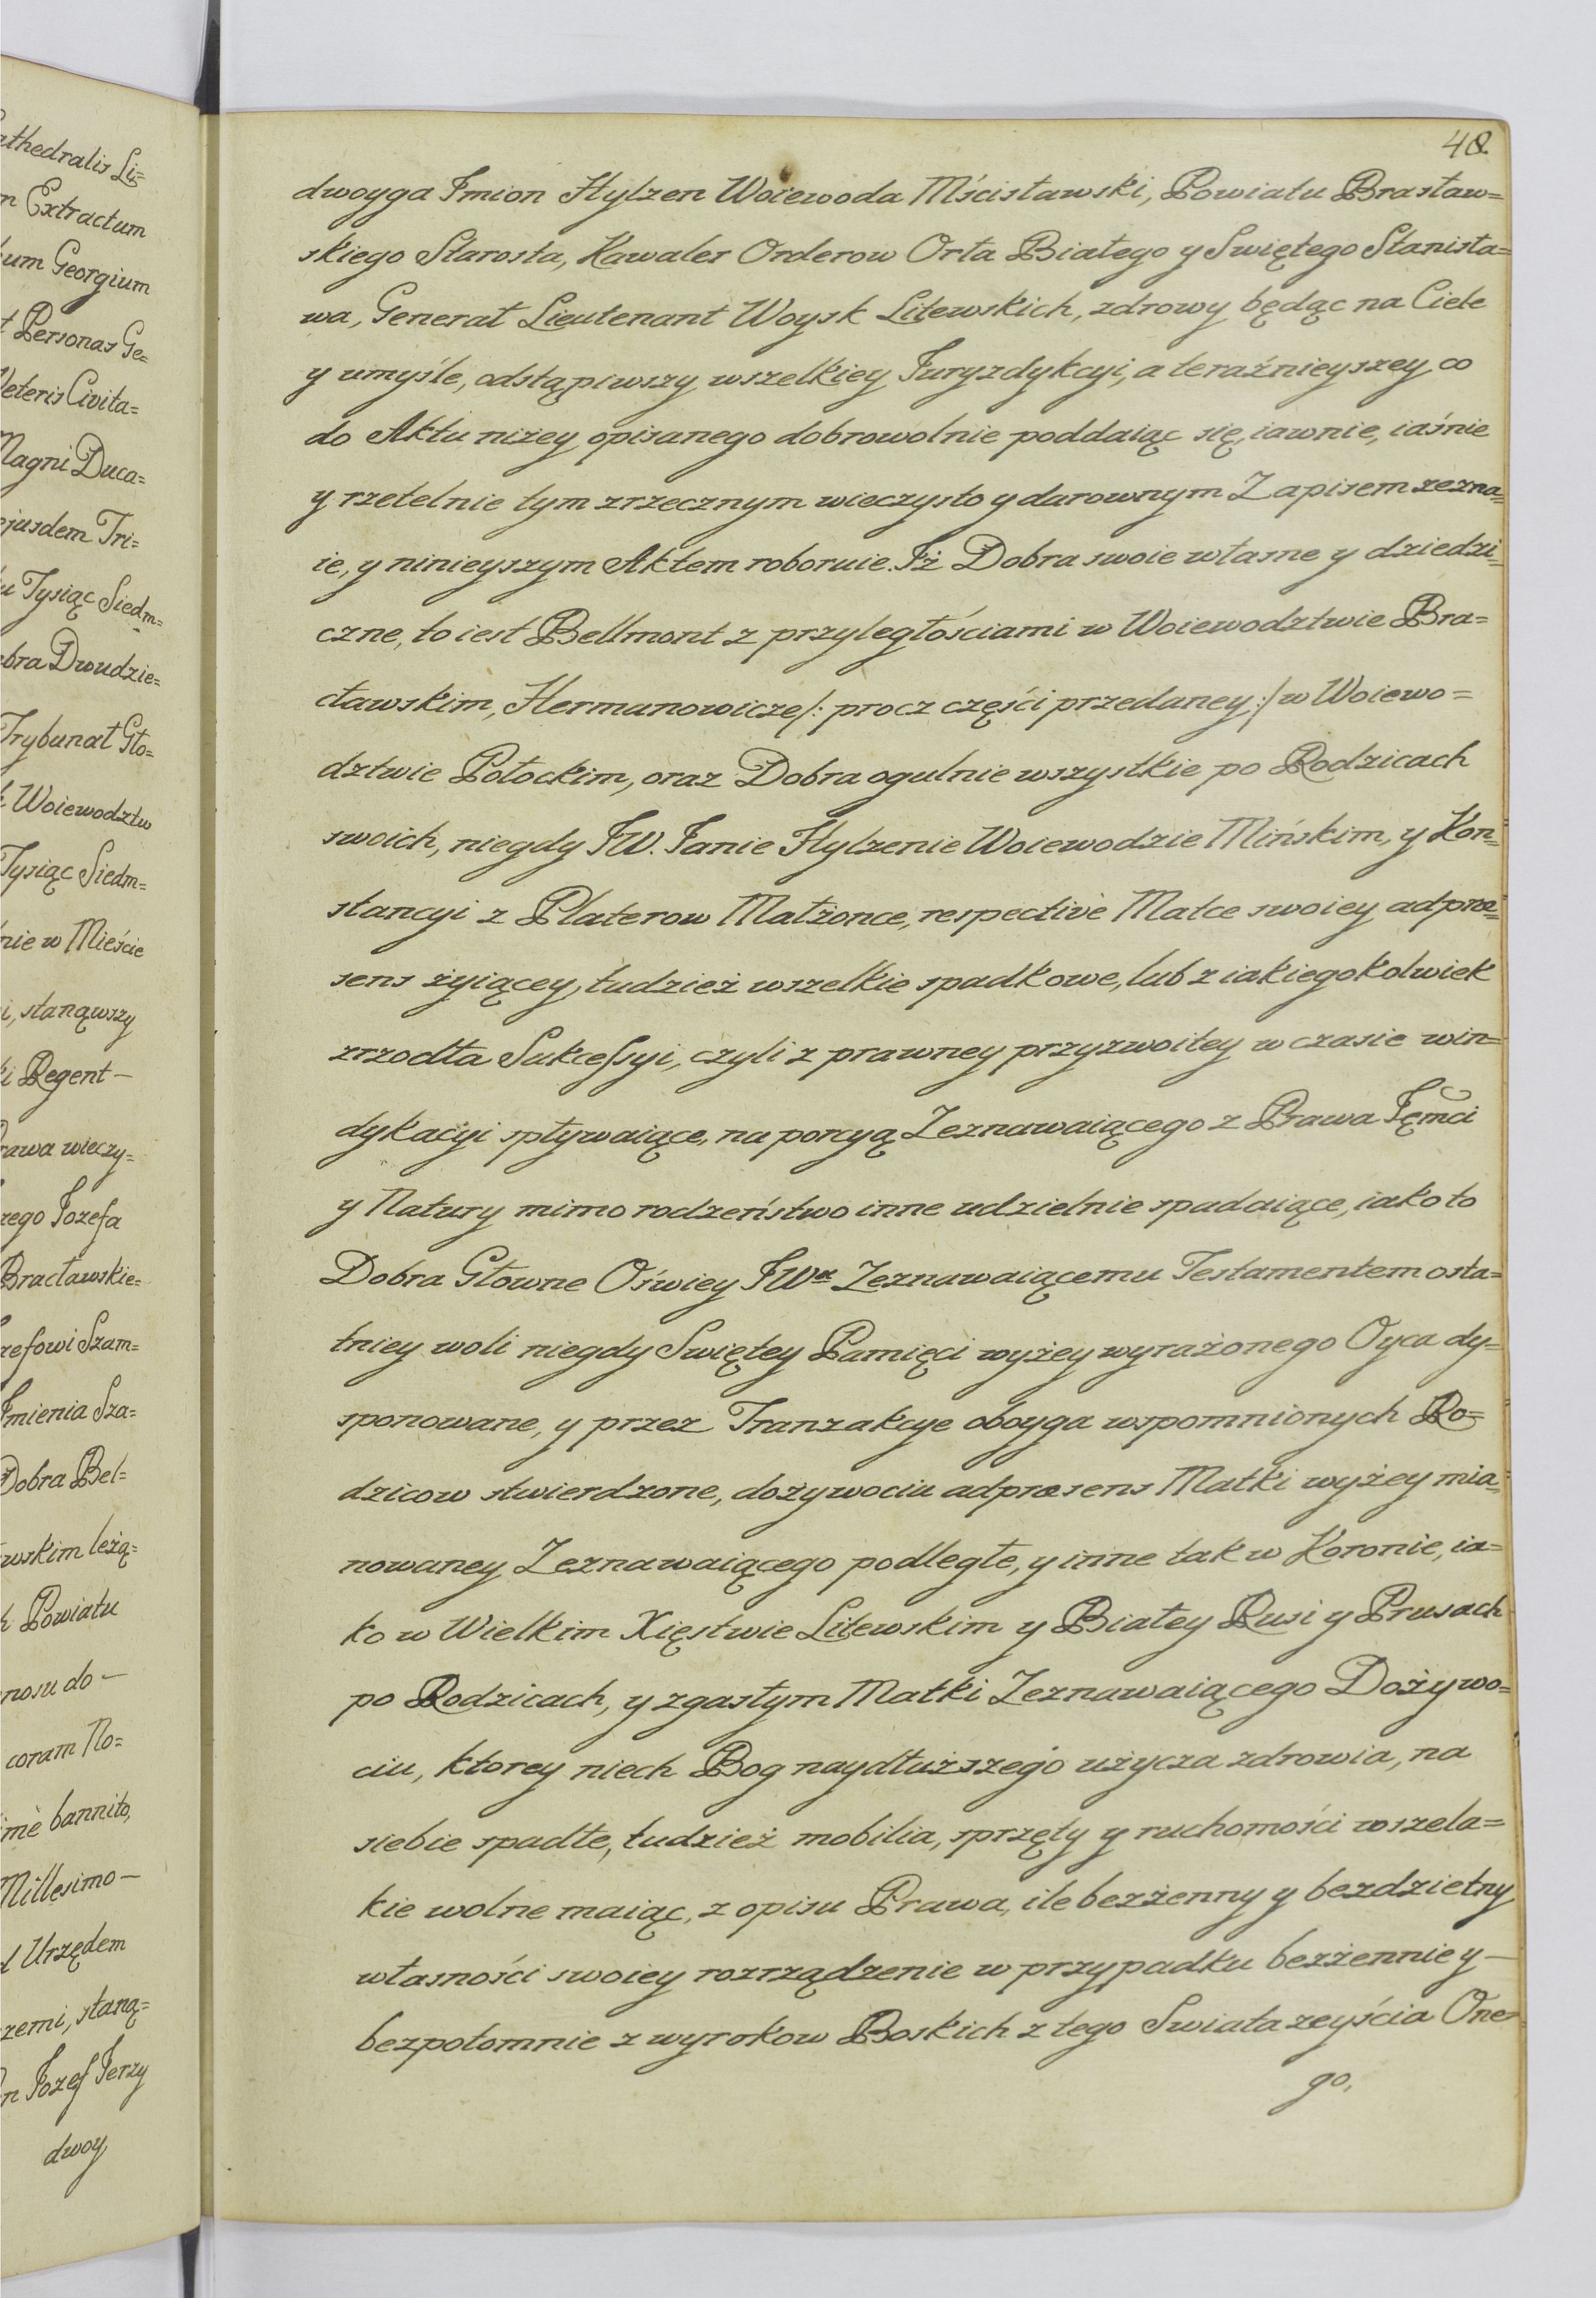 athedralis Li=
n Extractum
um Georgium
t Personas Ge=
Veteris Civita=
Magni Duca=
ejusdem Tri=
u Tysiąc Siedm=
bra Dwudzie=
Trybunał Gło=
Woiewodztw
Tysiąc Siedm=
nie w Mieście
i, stanąwszy
ki Regent —
rawa wieczy=
zego Jozefa
Bracławskie=
zefowi Szam=
Imienia Sza=
Dobra Bel=
wskim leżą=
h Powiatu
nosu do —
coram No=
imè bannito,
Millesimo —
d Urzędem
zemi, staną=
n Jozef Jerzy
dwoy
48
dwoyga Imion Hylzen Woiewoda Mścisławski, Powiatu Brasław=
skiego Starosta, Kawaler Orderow Orła Białego y Swiętego Stanisła=
wa, Generał Lieutenant Woysk Litewskich, zdrowy będąc na Ciele
y umyśle, odstąpiwszy wszelkiey Juryzdykcyi, a teraźnieyszey co
do Aktu niżey opisanego dobrowolnie poddaiąc się, iawnie, iaśnie
y rzetelnie tym zrzecznym wieczysto y darownym Zapisem zezna=
ie, y ninieyszym Aktem roboruie. Iż Dobra swoie własne y dziedzi=
czne, to iest Bellmont z przyległościami w Woiewodztwie Bra=
cławskim, Hermanowicze /: procz części przedaney :/ w Woiewo=
dztwie Połockim, oraz Dobra ogulnie wszystkie po Rodzicach
swoich, niegdy JW. Janie Hylzenie Woiewodzie Mińskim, y Kon=
stancyi z Platerow Małżonce, respectivè Matce swoiey adpræ=
sens żyiącey, tudzież wszelkie spadkowe, lub z iakiegokolwiek
zrzodła Sukcessyi, czyli z prawney przyzwoitey w czasie win=
dykacyi spływaiące, na porcyą Zeznawaiącego z Prawa Jęmci
y Natury mimo rodzeństwo inne udzielnie spadaiące, iako to
Dobra Głowne Oświey JWu Zeznawaiącemu Testamentem osta=
tniey woli niegdy Swiętey Pamięci wyżey wyrażonego Oyca dy=
sponowane, y przez Tranzakcye oboyga wspomnionych Ro=
dzicow stwierdzone, dożywociu adpræsens Matki wyżey mia=
nowaney Zeznawaiącego podległe, y inne tak w Koronie, ia=
ko w Wielkim Xięstwie Litewskim y Białey Rusi y Prusach
po Rodzicach, y zgasłym Matki Zeznawaiącego Dożywo=
ciu, ktorey niech Bog naydłuższego użycza zdrowia, na
siebie spadłe, tudzież mobilia, sprzęty y ruchomości wszela=
kie wolne maiąc, z opisu Prawa, ile bezżenny y bezdzietny
własności swoiey rozrządzenie w przypadku bezżennie y —
bezpotomnie z wyrokow Boskich z tego Swiata zeyścia One=
go,